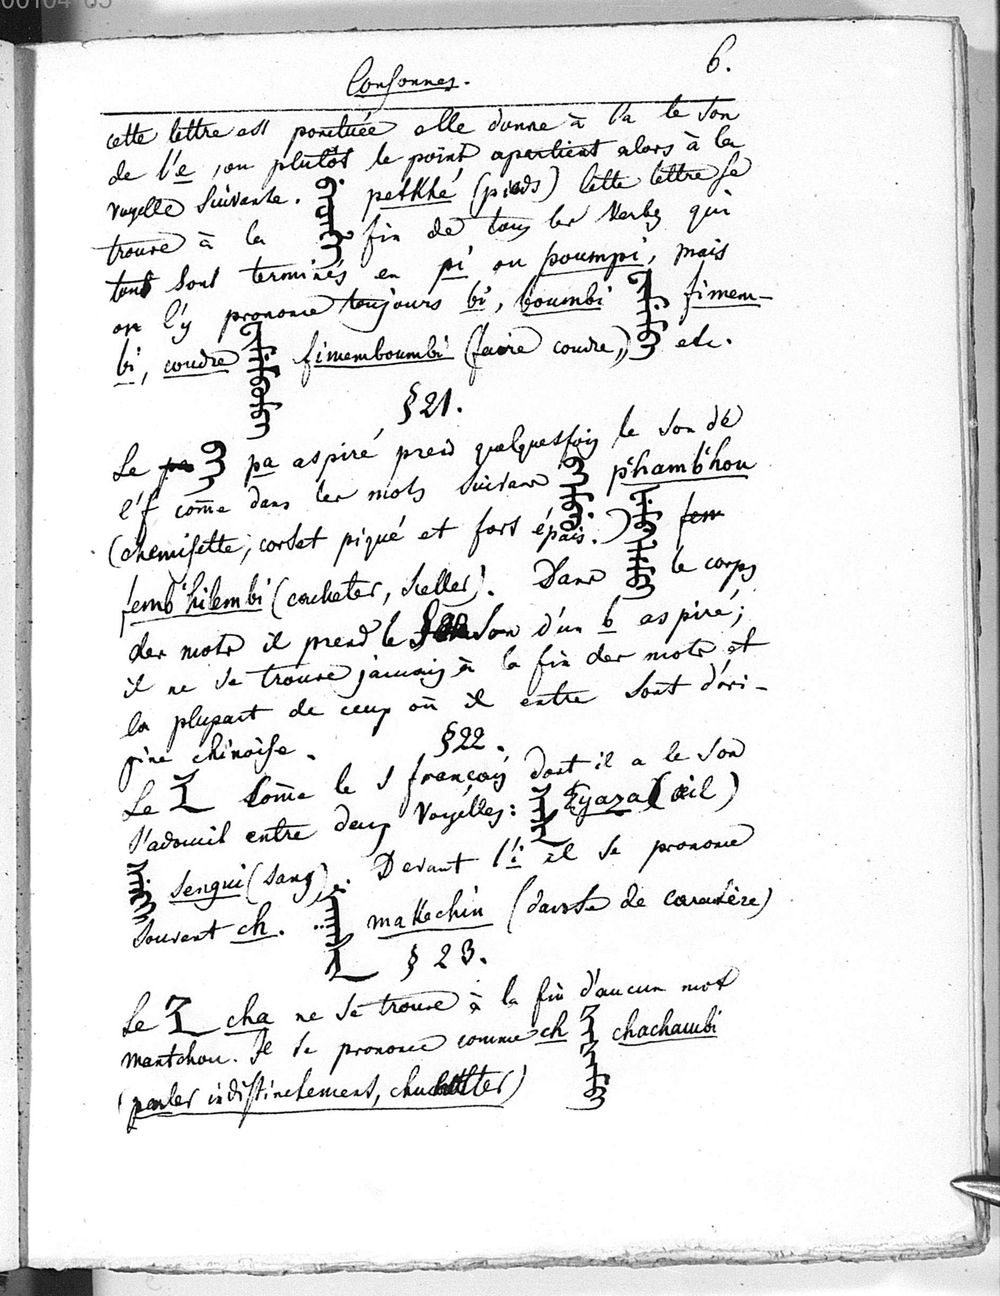 Consonnes. 6.
cette lettre est ponctuée elle donne à l'a le son
de l'e, ou plutôt le point apartient alors à la
voyelle suivante. petkhé (pieds) Cette lettre se
trouve à la fin de tous les verbes qui
tous sont terminés en pi ou poumpi, mais
on l'y prononce toujours bi, boumbi fimem-
bi, coudre fimemboumbi (faire coudre,) etc.
§ 21.
Le pa aspiré, prend quelquesfois le son de
l'f come dans les mots suivans p'hamb'hou
(chemisette, corset piqué et fort épais.)
femb'hilembi (cacheter, sceller). Dans le corps
des mots il prend le son d'un b aspiré;
il ne se trouve jamais à la fin des mots et
la plupart de ceux où il entre sont d'ori-
gine chinoise.
§ 22.
Le come le s françois dont il a le son
s'adoucit entre deux voyelles: (œil)
sengui (sang). Devant l'i il se prononce
souvent ch. makachin de caractère)
§ 23.
Le cha ne se trouve à la fin d'aucun mot
mantchou. Il se prononce comme ch chachambi
(parler indistinctement, chuchotter)